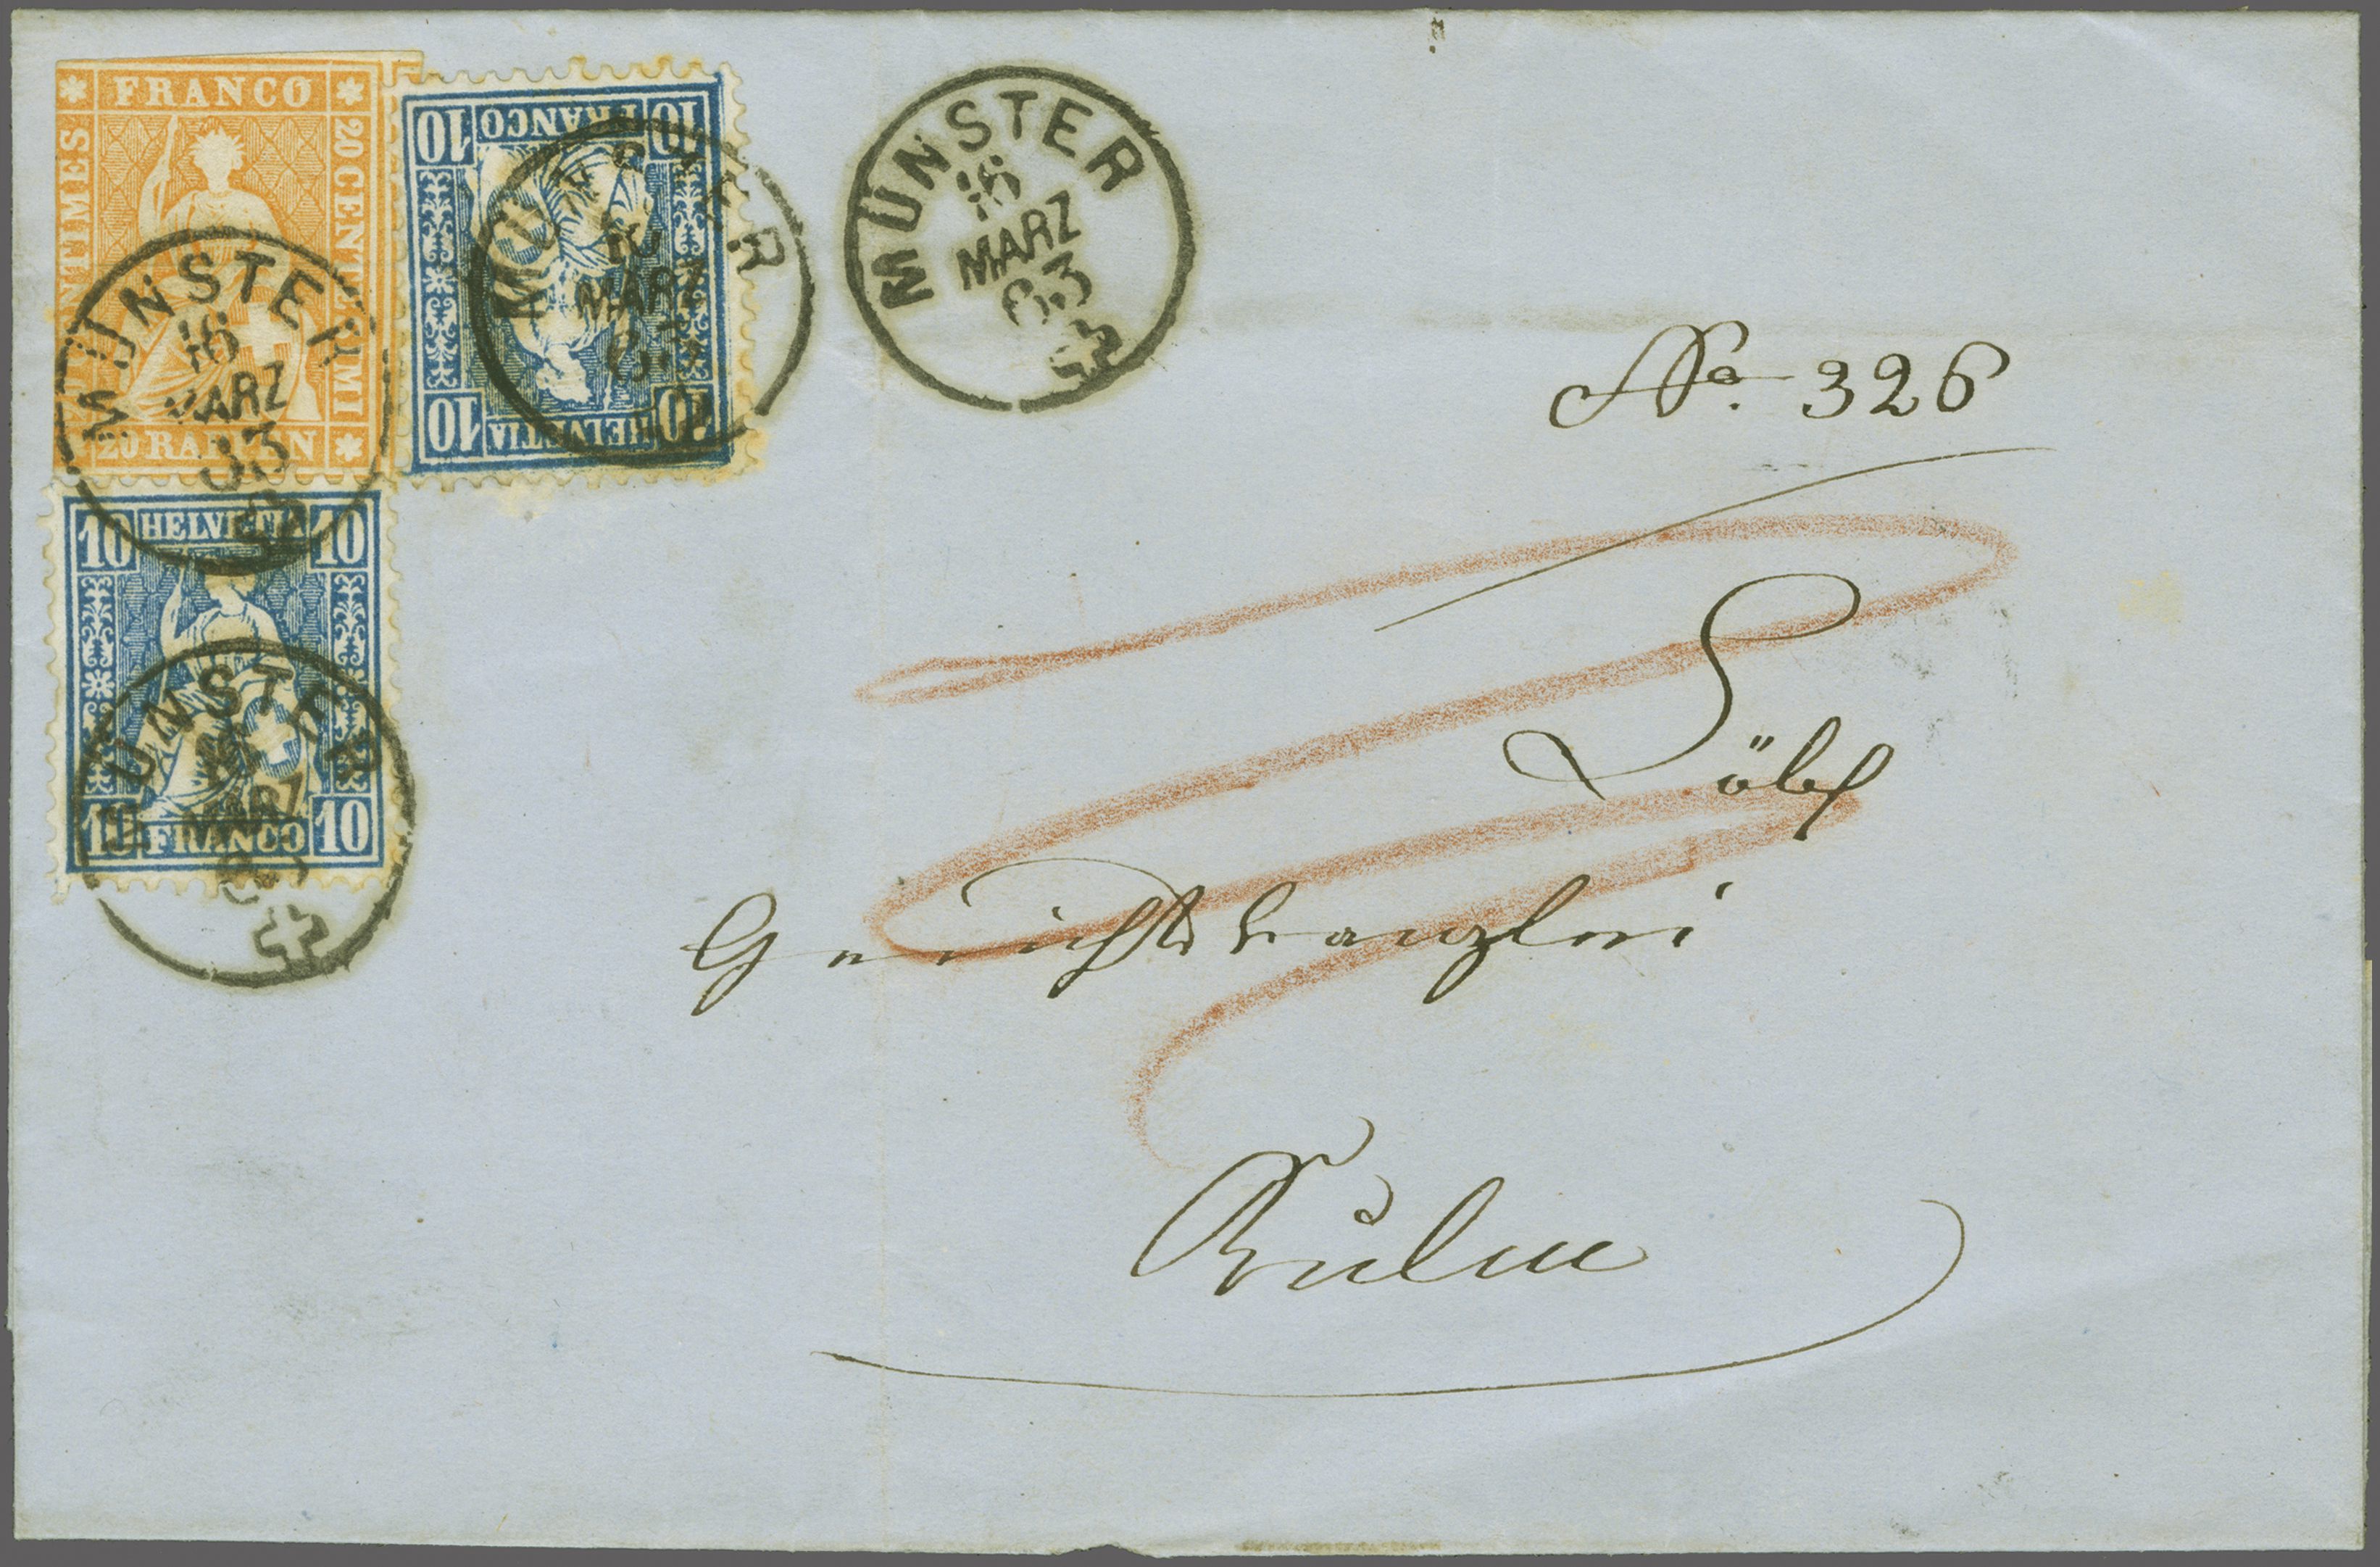 FRANCO
20 CENTESIMI
20 RAPPEN
CENTIMES
10 HELVETIA 10
10 FRANCO 10
MÜNSTER
16
MARZ
63
MÜNSTER
16
MARZ
63
10 HELVETIA 10
10 FRANCO 10
MÜNSTER
MARZ
MÜNSTER
16
MARZ
63
No. 326
Löbl
Gerichtskanzlei
Kulm